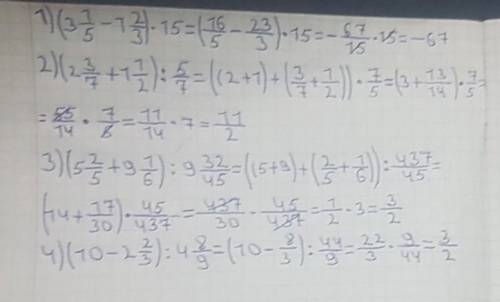 1)(3 1/5 - 7 2/3) · 15 = (16/5 - 23/3) · 15 = - 67/15 · 15 = -67
2)(2 3/7 + 1 1/2) : 5/7 = ((2+1) + (3/7 + 1/2)) · 7/5 = (3 + 13/14) · 7/5 =
= 55/14 · 7/5 = 11/14 · 7 = 11/2
3)(5 2/5 + 9 1/6) : 9 32/45 = (15+9) + (2/5 + 1/6)) : 437/45 =
(14 + 17/30) · 45/437 = 437/30 · 45/437 = 1/2 · 3 = 3/2
4)(10 - 2 2/3) : 4 8/9 = (10 - 8/3) : 44/9 = 22/3 · 9/44 = 3/2